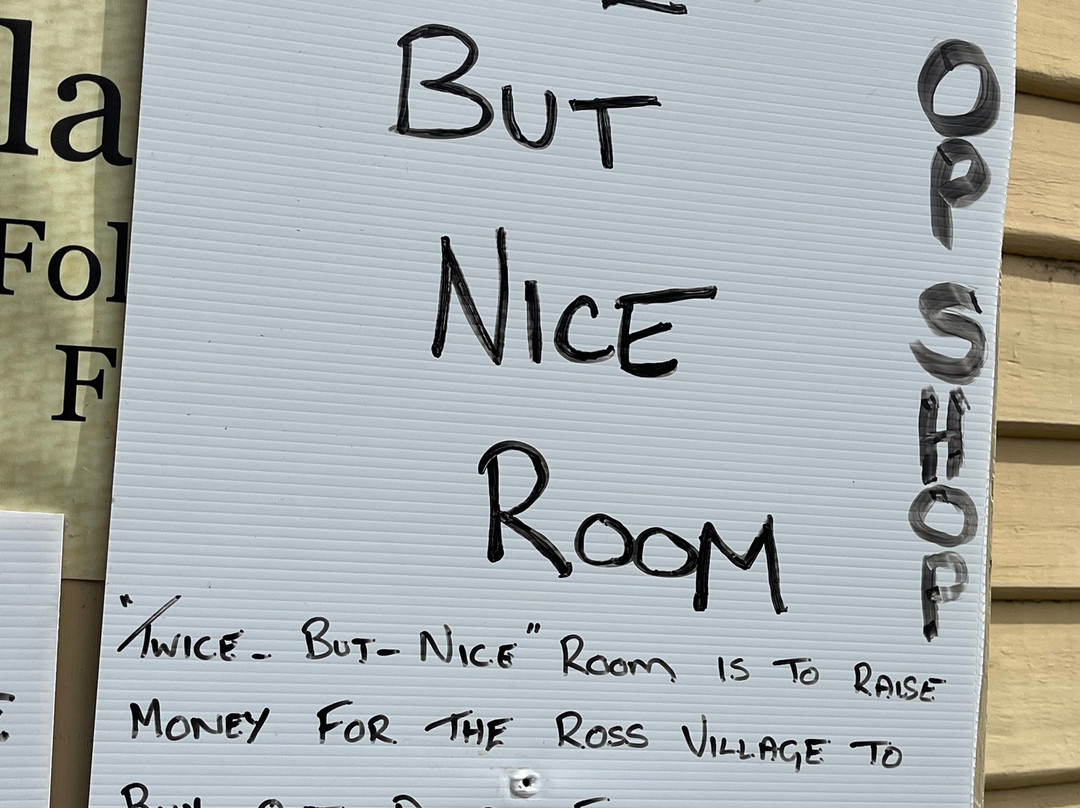 BUT
NICE
ROOM
OP SHOP
"TWICE - BUT - NICE" ROOM IS TO RAISE
MONEY FOR THE ROSS VILLAGE TO
la
Fol
F